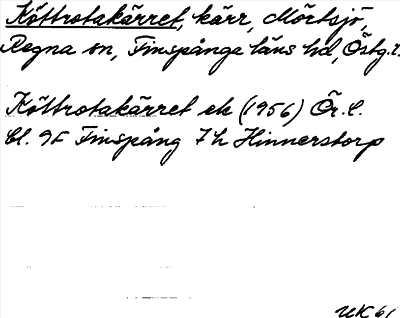 Köttrotakärret, kärr, Mörtsjö,
Regna sn, Finspånga läns hd, Östg.l.
Köttrotakärret ek (1956) Ör. l.
bl. 9F Finspång 7h Hinnerstorp
UK 61